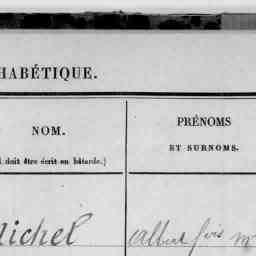 HABÉTIQUE.
NOM.
doit être écrit en bâtarde.)
PRÉNOMS
ET SURNOMS.
lichel
Albert